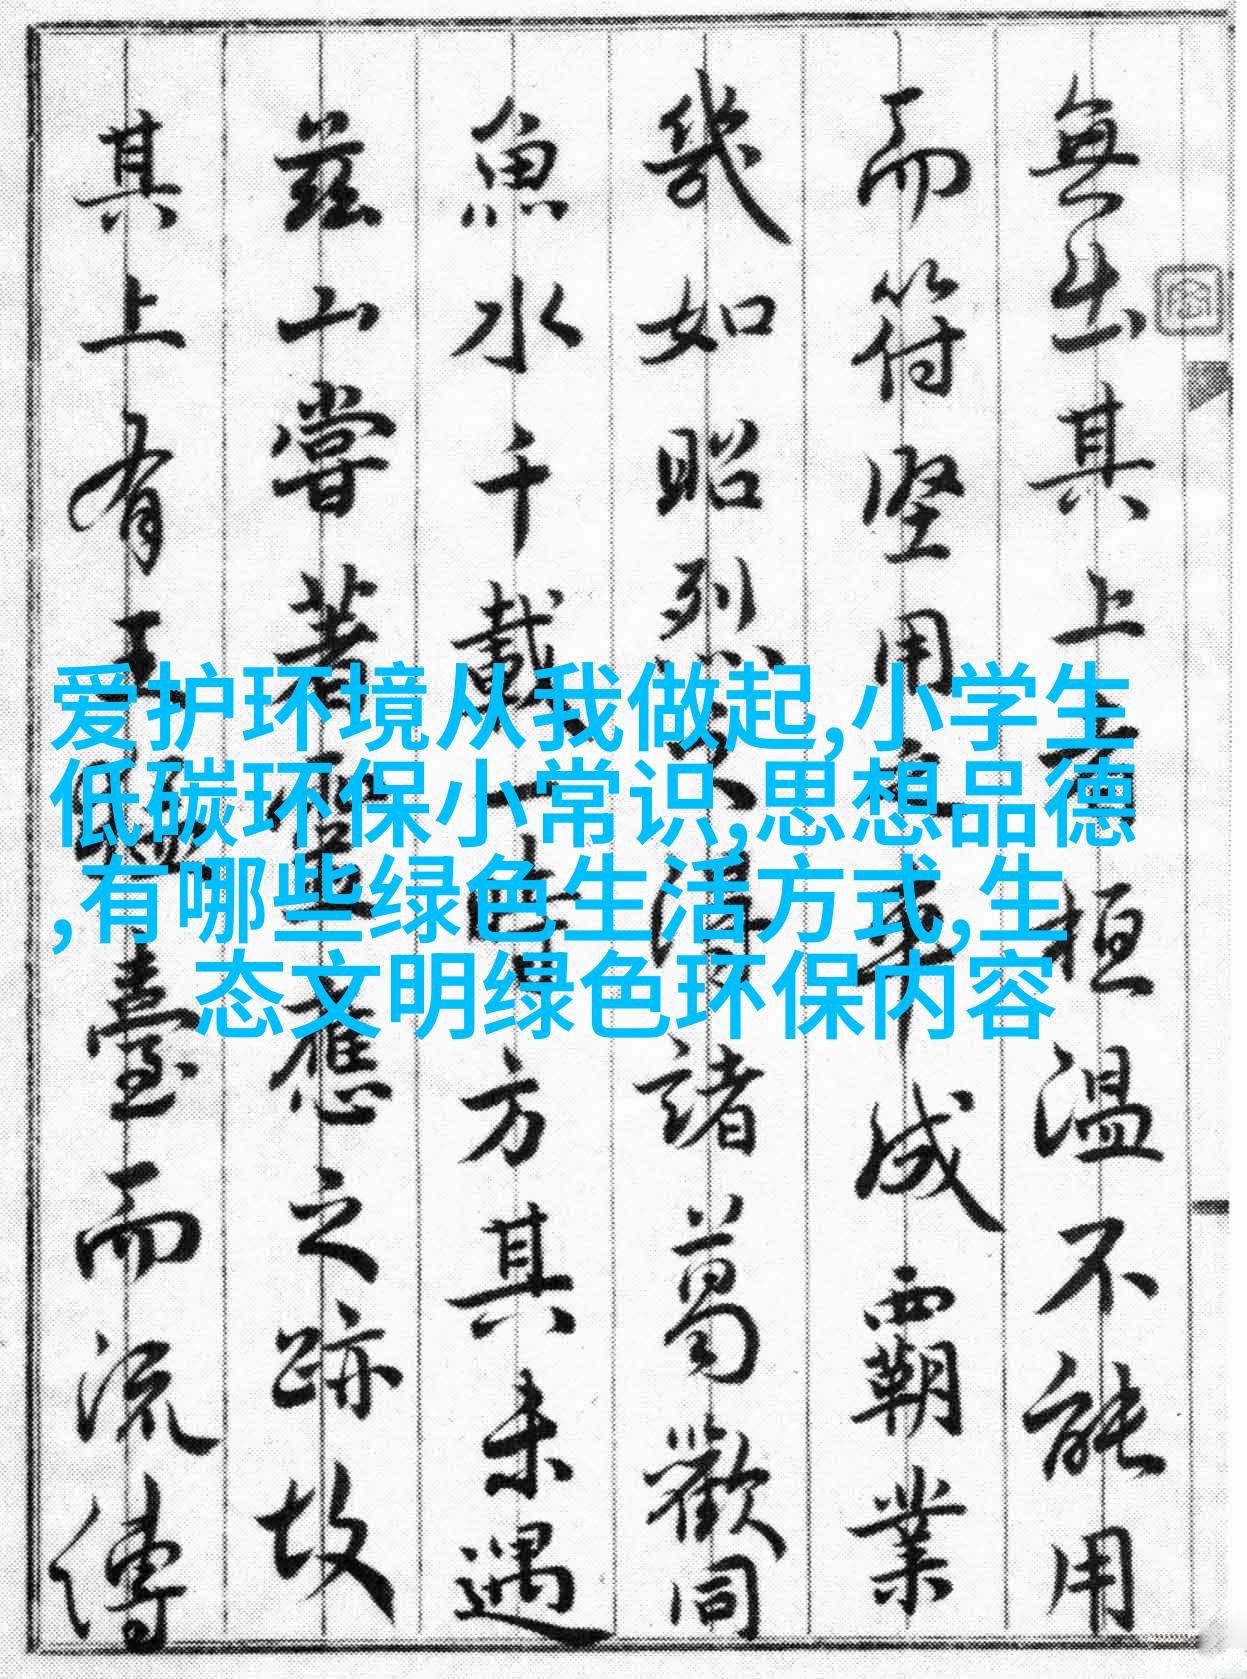 無出其上桓温不能用
而符堅用成覇業
幾如昭烈諸葛歡同
魚水千載一時方其未遇
茲山嘗著應之跡故
其上有王臺而流傳
爱护环境从我做起,小学生
低碳环保小常识,思想品德
,有哪些绿色生活方式,生
态文明绿色环保内容